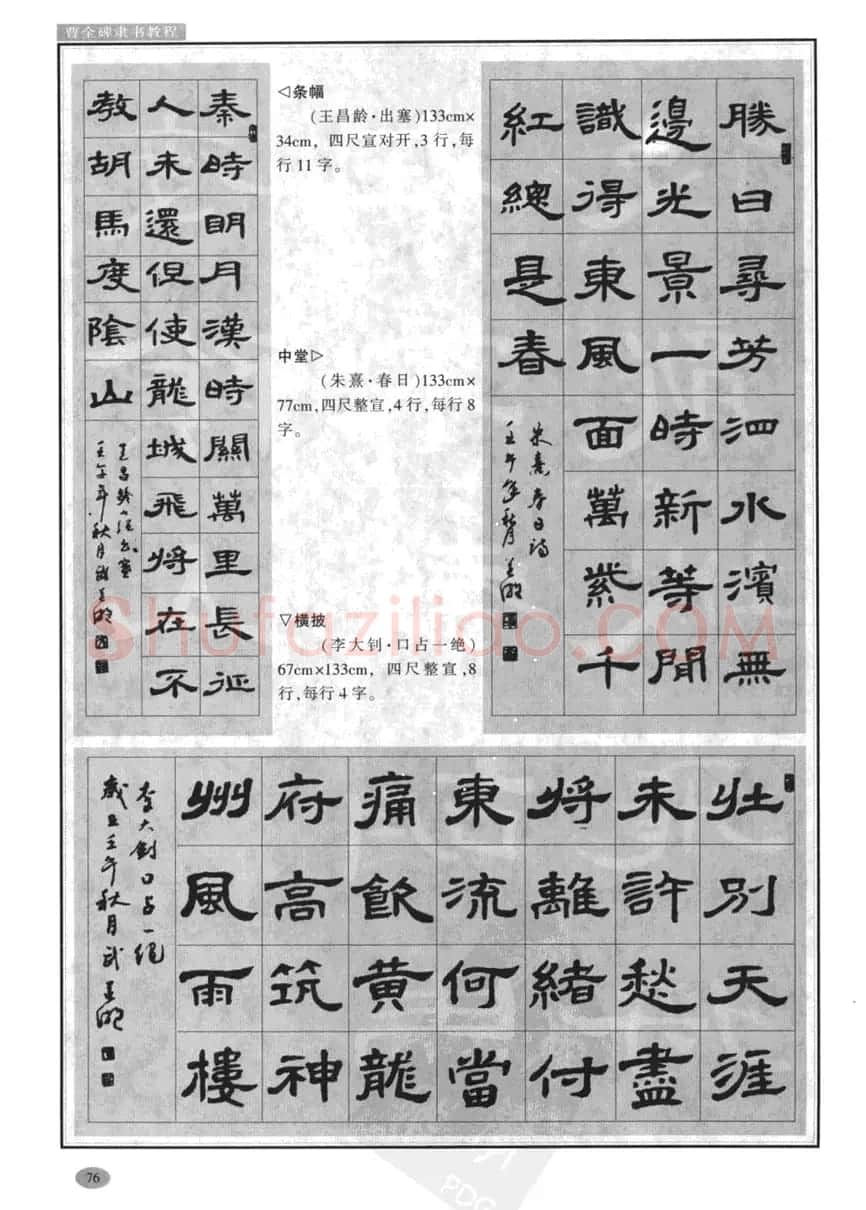 曹全碑隶书教程
◁条幅
(王昌龄·出塞)133cm×
34cm，四尺宣对开,3 行,每
行 11 字。
秦時明月漢時關萬里長征
人未還但使龍城飛將在不
教胡馬度陰山
王昌龄诗出塞
壬午年秋月武
中堂▷
(朱熹·春日)133cm×
77cm,四尺整宣,4 行,每行 8
字。
勝日尋芳泗水濱無
邊光景一時新等閒
識得東風面萬紫千
紅總是春
朱熹春日诗
壬午年秋月
▽横披
(李大钊·口占一绝)
67cm×133cm，四尺整宣,8
行,每行 4 字。
壯別天涯
未許愁盡
將離緒付
東流何當
痛飲黄龍
府高筑神
州風雨樓
李大钊口占一绝
岁在壬午秋月武
Shufaziliao.COM
76
PDG